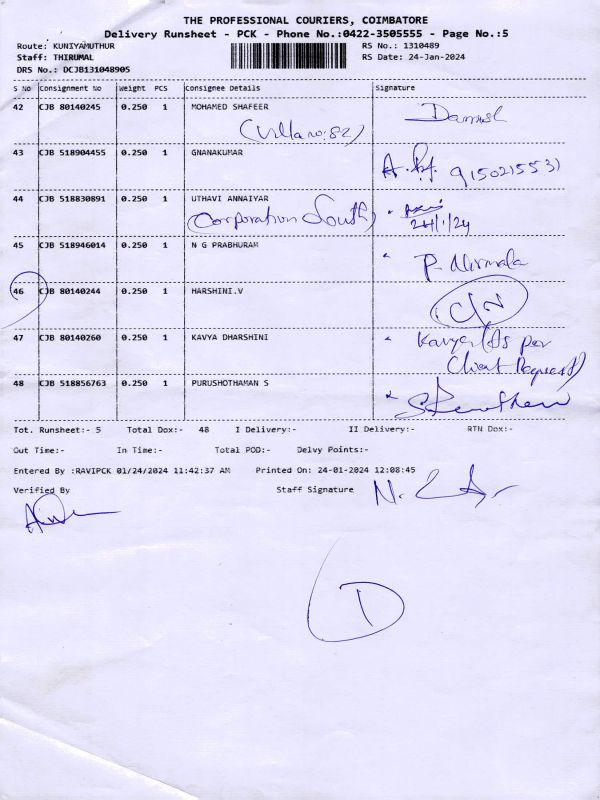 THE PROFESSIONAL COURIERS, COIMBATORE
Delivery Runsheet - PCK - Phone No.:0422-3505555 - Page No.:5
Route: KUNIYAMUTHUR RS No.: 1310489
Staff: THIRUMAL RS Date: 24-Jan-2024
DRS No.: DCJB131048905
S No Consignment No Weight PCS Consignee Details Signature
42 CJB 80140245 0.250 1 MOHAMED SHAFEER
(Villa no: 82)
43 CJB 518904455 0.250 1 GNANAKUMAR
9150215531
44 CJB 518830891 0.250 1 UTHAVI ANNAIYAR
(Corporation South) 24/1/24
45 CJB 518946014 0.250 1 N G PRABHURAM
P. Nirmala
46 CJB 80140244 0.250 1 HARSHINI.V
C/N
47 CJB 80140260 0.250 1 KAVYA DHARSHINI Kavya (As per
Client Request)
48 CJB 518856763 0.250 1 PURUSHOTHAMAN S
Tot. Runsheet:- 5 Total Dox:- 48 I Delivery:- II Delivery:- RTN Dox:-
Out Time:- In Time:- Total POD:- Delvy Points:-
Entered By :RAVIPCK 01/24/2024 11:42:37 AM Printed On: 24-01-2024 12:08:45
Verified By Staff Signature
D